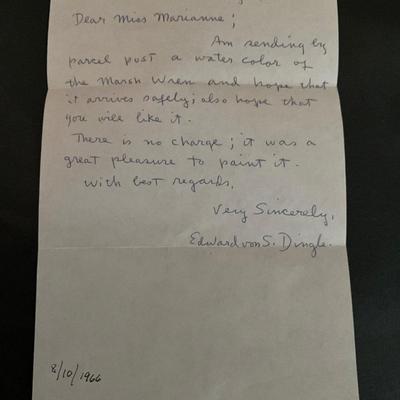 Dear Miss Marianne;
Am sending by
parcel post a water color of
the Marsh Wren and hope that
it arrives safely; also hope that
you will like it.
There is no charge; it was a
great pleasure to paint it.
With best regards,
Very Sincerely,
Edward von S. Dingle.
8/10/1966